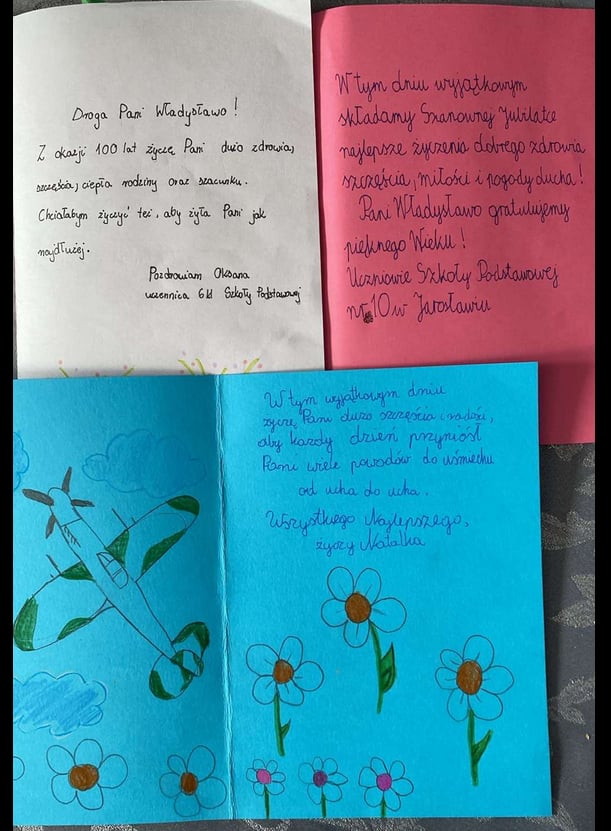 Droga Pani Władysławo!
Z okazji 100 lat życzę Pani dużo zdrowia,
szczęścia, ciepła rodziny oraz szacunku.
Chciałabym życzyć też, aby żyła Pani jak
najdłużej.
Pozdrawiam Oksana
uczennica 6d Szkoły Podstawowej
W tym dniu wyjątkowym
składamy Szanownej Jubilatce
najlepsze życzenia dobrego zdrowia
szczęścia, miłości i pogody ducha!
Pani Władysławo gratulujemy
pięknego Wieku!
Uczniowie Szkoły Podstawowej
nr 10 w Jarosławiu
W tym wyjątkowym dniu
życzę Pani dużo szczęścia i radości,
aby każdy dzień przyniósł
Pani wiele powodów do uśmiechu
od ucha do ucha.
Wszystkiego Najlepszego,
życzy Natalka